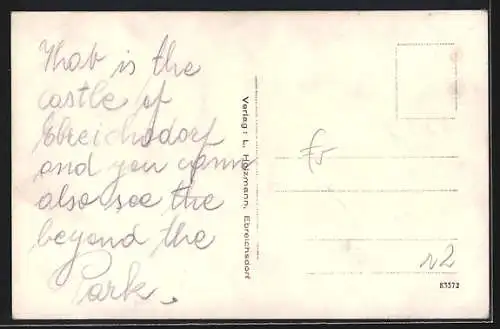 That is the
castle of
Ebreichsdorf
and you cann
also see the
beyond the
Park.
Verlag: L. Holzmann, Ebreichsdorf
83572